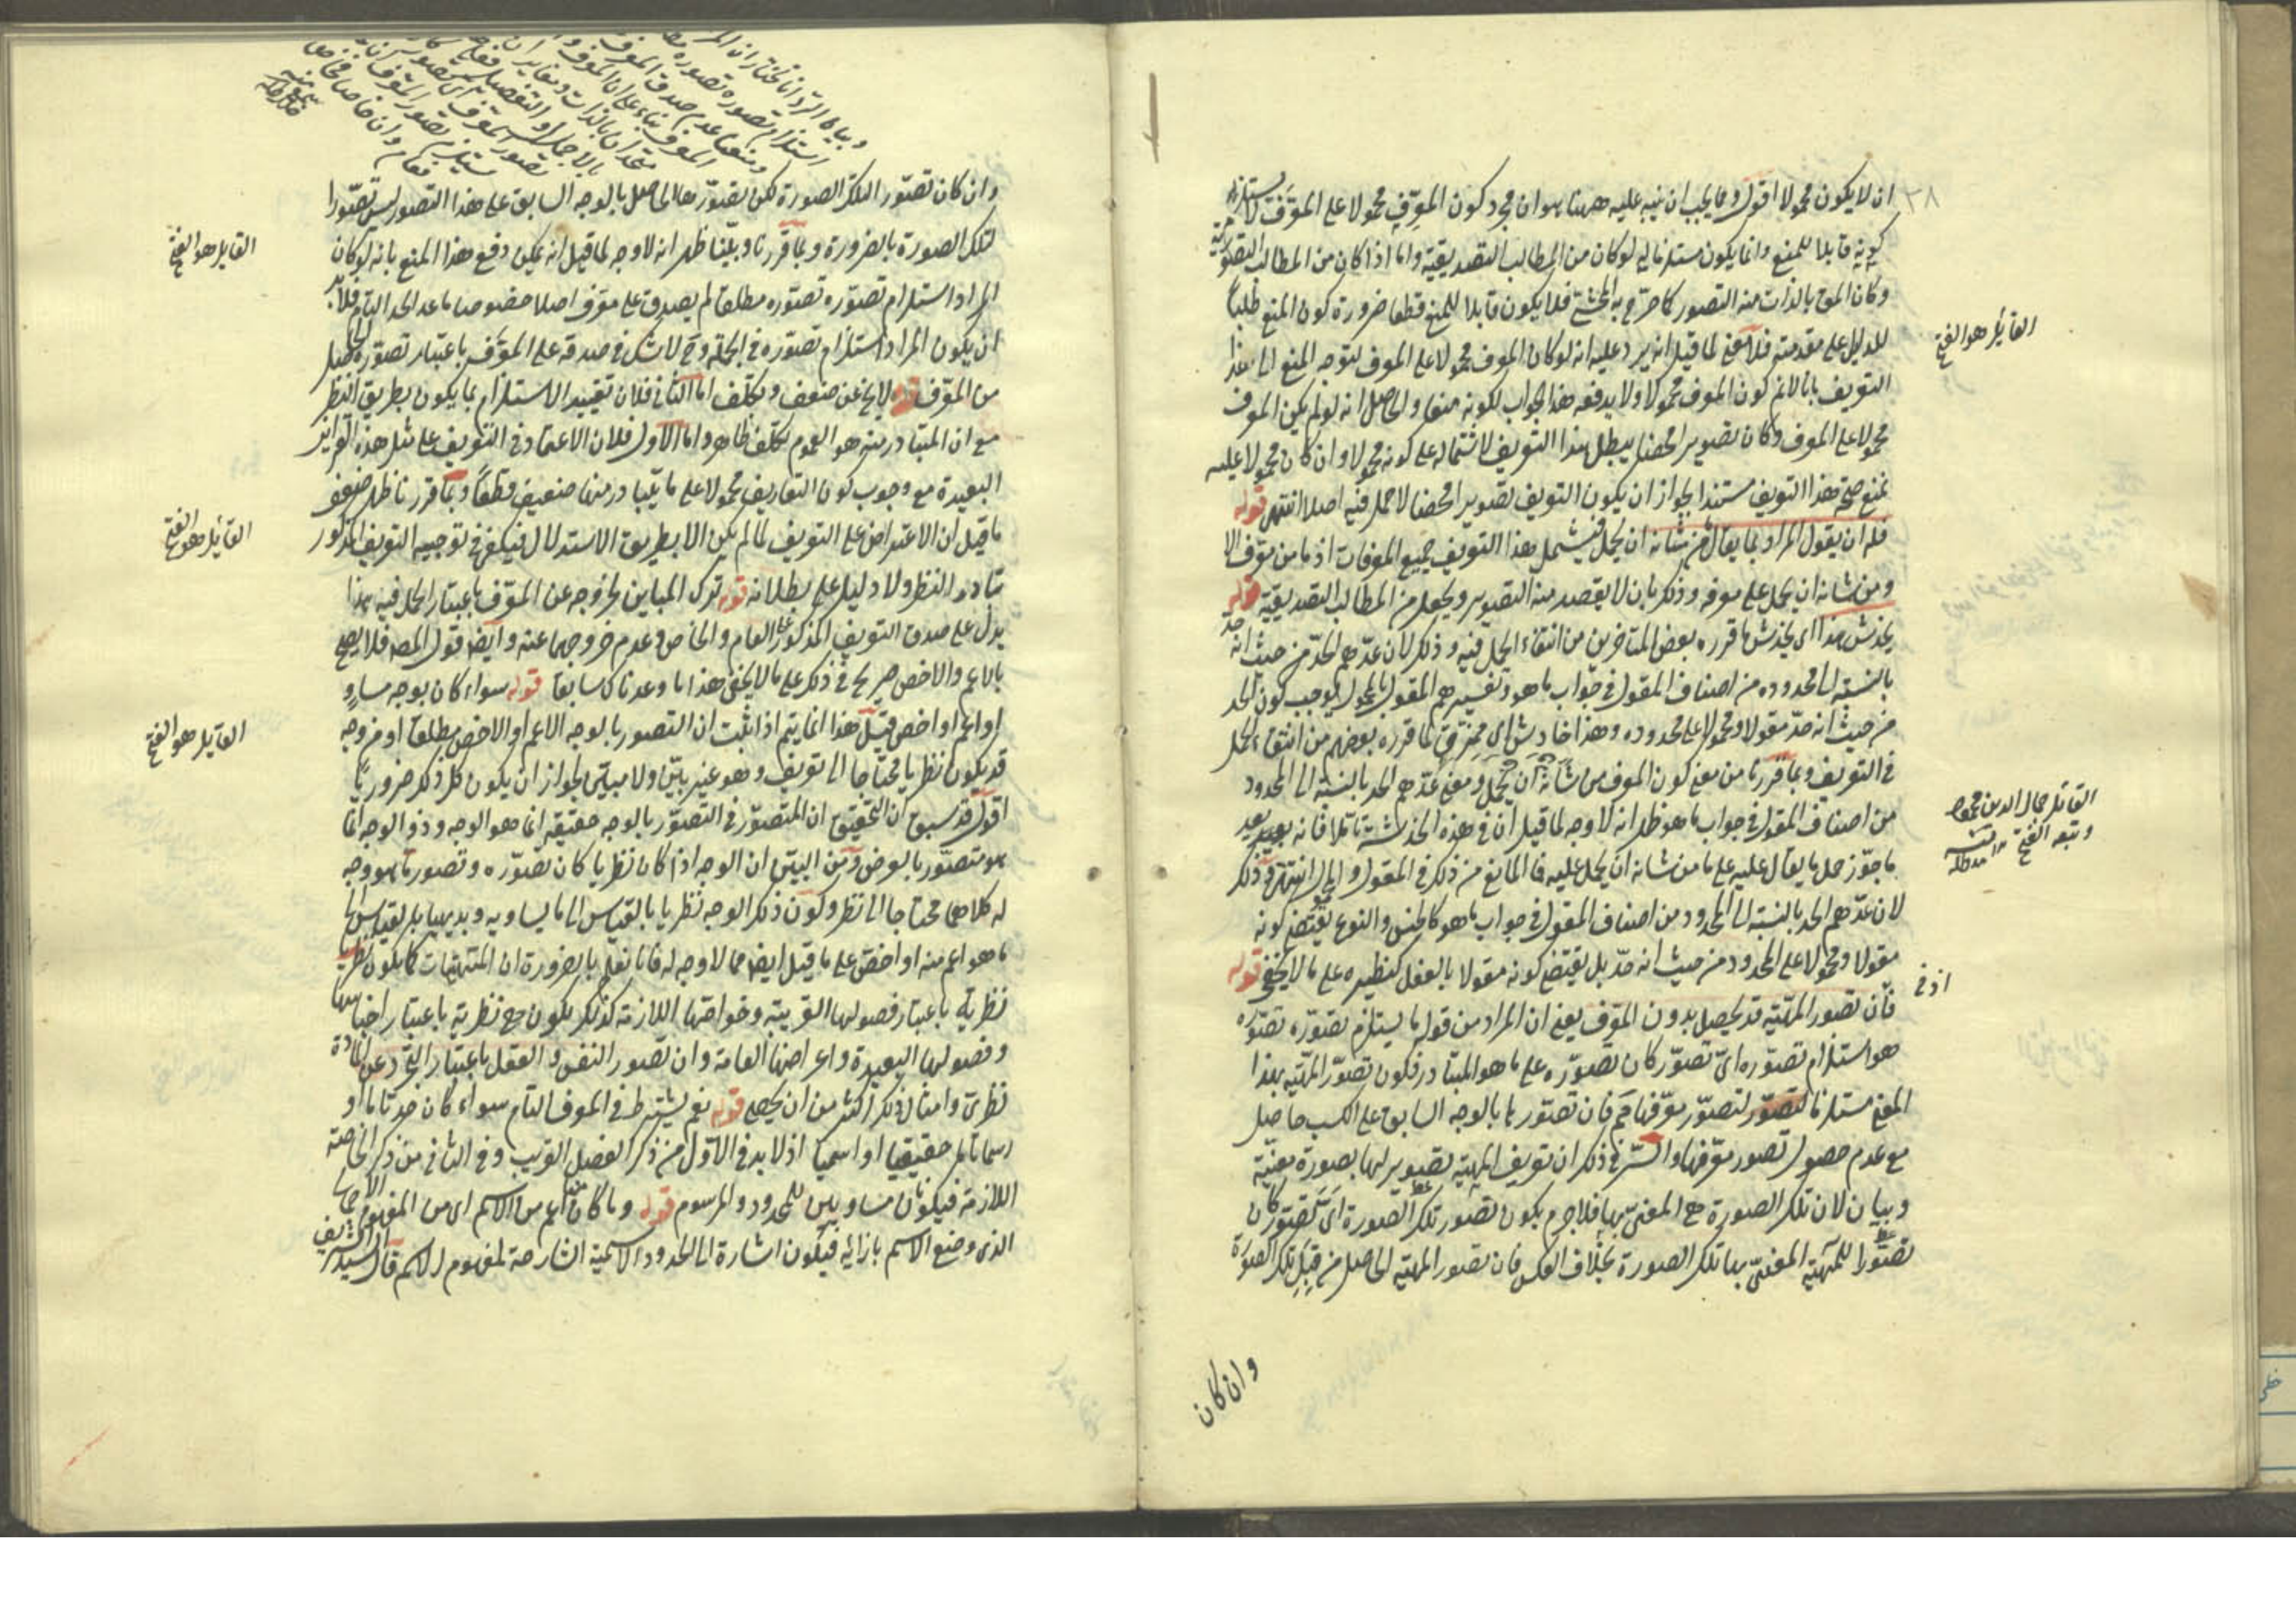 ٣٨
ان لا يكون محمولا اقول ومما يجب ان ينبه عليه ههنا هو ان مجرد كون المعرِّف محمولا على المعرَّف لا يستلزم
كونه قابلا للمنع وانما يكون مستلزما له لو كان من المطالب التصديقية واما اذا كان من المطالب التصورية
وكان المق بالذات منه التصور كما صرح به المحشي فلا يكون قابلا للمنع قطعا ضرورة كون المنع طلبا
للدليل على مقدمته فلا معنى لما قيل انه يرد عليه انه لو كان المعرف محمولا على المعرف لتوجه المنع الى هذا
التعريف بانا لا نم كون المعرف محمولا ولا يدفعه هذا الجواب لكونه منعا والحاصل انه لو لم يكن المعرف
محمولا على المعرف وكان تصويرا محضا يبطل هذا التعريف لاشتماله على كونه محمولا وان كان محمولا عليه
نمنع صحة هذا التعريف مستندا بجواز ان يكون التعريف تصويرا محضا لا حمل فيه اصلا انتهى قوله
فله ان يقول المراد بما يقال من شانه ان يحمل فيشمل هذا التعريف جميع المعرفات اذ ما من معرف الا
ومن شانه ان يحمل على معرفه وذلك بان لا يقصد منه التصوير ويجعل من المطالب التصديقية قوله
يخدش هذا اى يخدش ما قرره بعض المتاخرين من انتفاء الحمل فيه وذلك لان عدهم الحد من حيث انه حد
بالنسبة الى محدوده من اصناف المقول في جواب ما هو وتفسيرهم المقول بالمحمول يوجب كون الحد
من حيث انه حد مقولا ومحمولا على محدوده وهذا خادش اى ممزق لما قرره بعضهم من انتفاء الحمل
في التعريف وبما قررنا من معنى كون المعرف من شانه ان يحمل ومعنى عدهم الحد بالنسبة الى المحدود
من اصناف المقول في جواب ما هو ظهر انه لا وجه لما قيل ان في هذه الخدشة تاملا فانه بعد
ما جوز حمل ما يقال عليه على ما من شانه ان يحمل عليه فما المانع من ذلك في المقول والمحمول انتهى وذلك
لان عدهم الحد بالنسبة الى المحدود من اصناف المقول في جواب ما هو كالجنس والنوع يقتضى كونه
مقولا ومحمولا على المحدود من حيث انه حد بل يقتضى كونه مقولا بالفعل كنظيره على ما لا يخفى قوله
فان تصور المهية قد يحصل بدون المعرف يعنى ان المراد من قوله ما يستلزم تصوره تصوره
هو استلزام تصوره اى تصور كان تصوره على ما هو المتبادر فكون تصور المهية بهذا
المعنى مستلزما لتصور معرفها مم فان تصورها بالوجه السابق على الكسب حاصل
مع عدم حصول تصور معرفها والسر في ذلك ان تعريف المهية تصوير لها بصورة معينة
وبيان لان تلك الصورة هى المعنى بها فلا جرم يكون تصور تلك الصورة اى تصور كان
تصورا للمهية المعنى بها تلك الصورة بخلاف العكس فان تصور المهية الحاصل من قبل تلك الصورة
وان كان
القايل هو الفتح
القائل جمال الدين محمود
وتبعه الفتح منه مد ظله
اذ فى
وان كان تصور تلك الصورة لكن تصورها الحاصل بالوجه السابق على هذا التصور ليس تصورا
لتلك الصورة بالضرورة وبما قررنا وبينا ظهر انه لا وجه لما قيل انه يمكن دفع هذا المنع بانه لو كان
المراد استلزام تصوره تصوره مطلقا لم يصدق على معرف اصلا خصوصا ما عد الحد التام فلا بد
ان يكون المراد استلزام تصوره في الجملة وح لا شك في صدقه على المعرف باعتبار تصوره الحاصل
من المعرف قوله لا يخ عن ضعف وتكلف اما الثانى فلان تقييد الاستلزام بما يكون بطريق النظر
مع ان المتبادر منه هو العموم تكلف ظاهر واما الاول فلان الاعتماد في التعريف على مثل هذه القراين
البعيدة مع وجوب كون التعاريف محمولا على ما يتبادر منها ضعيف قطعا وبما قررنا ظهر ضعف
ما قيل ان الاعتراض على التعريف لما لم يكن الا بطريق الاستدلال فيكفى في توجيه التعريف المذكور
تبادر النظر ولا دليل على بطلانه قوله ترك المباين لخروجه عن المعرف باعتبار الحمل فيه هذا
يدل على صدق التعريف المذكور على العام والخاص وعدم خروجهما عنه وايضا قول المصـ فلا يصح
بالاعم والاخص صريح في ذلك على ما لا يخفى هذا ما وعدناك سابقا قوله سواء كان بوجه مساو
او اعم او اخص قيل هذا انما يتم اذا ثبت ان التصور بالوجه الاعم او الاخص مطلقا او من وجه
قد يكون نظريا محتاجا الى تعريف وهو غير بين ولا مبين لجواز ان يكون كل ذلك ضروريا
اقول قد سبق ان التحقيق ان المتصور في التصور بالوجه حقيقة انما هو الوجه وذو الوجه انما
هو متصور بالعرض ومن البين ان الوجه اذا كان نظريا كان تصوره وتصور ما هو وجه
له كلاهما محتاجا الى نظر وكون ذلك الوجه نظريا بالقياس الى ما يساويه وبديهيا بالقياس الى
ما هو اعم منه او اخص على ما قيل ايضا مما لا وجه له فانا نعلم بالضرورة ان المهيات كما يكون تصورها
نظرية باعتبار فصولها القريبة وخواصها اللازمة كذلك يكون هى نظرية باعتبار اجناسها
وفصولها البعيدة واعراضها العامة وان تصور النفس والعقل باعتبار التجرد عن المادة
نظرى وامثال ذلك اكثر من ان يحصى قوله نعم يشترط في المعرف التام سواء كان حدا تاما او
رسما تاما حقيقيا او اسميا اذ لا بد في الاول من ذكر الفصل القريب وفي الثانى من ذكر الخاصة
اللازمة فيكونان مساويين للمحدود والمرسوم قوله وما كان منها اعم من الاسم اى من المفهوم الاجمالى
الذى وضع الاسم بازائه فيكون اشارة الى الحدود الاسمية الشارحة لمفهوم الاسم قال السيد الشريف
القايل هو الفتح
القايل هو الفتح
القايل هو الفتح